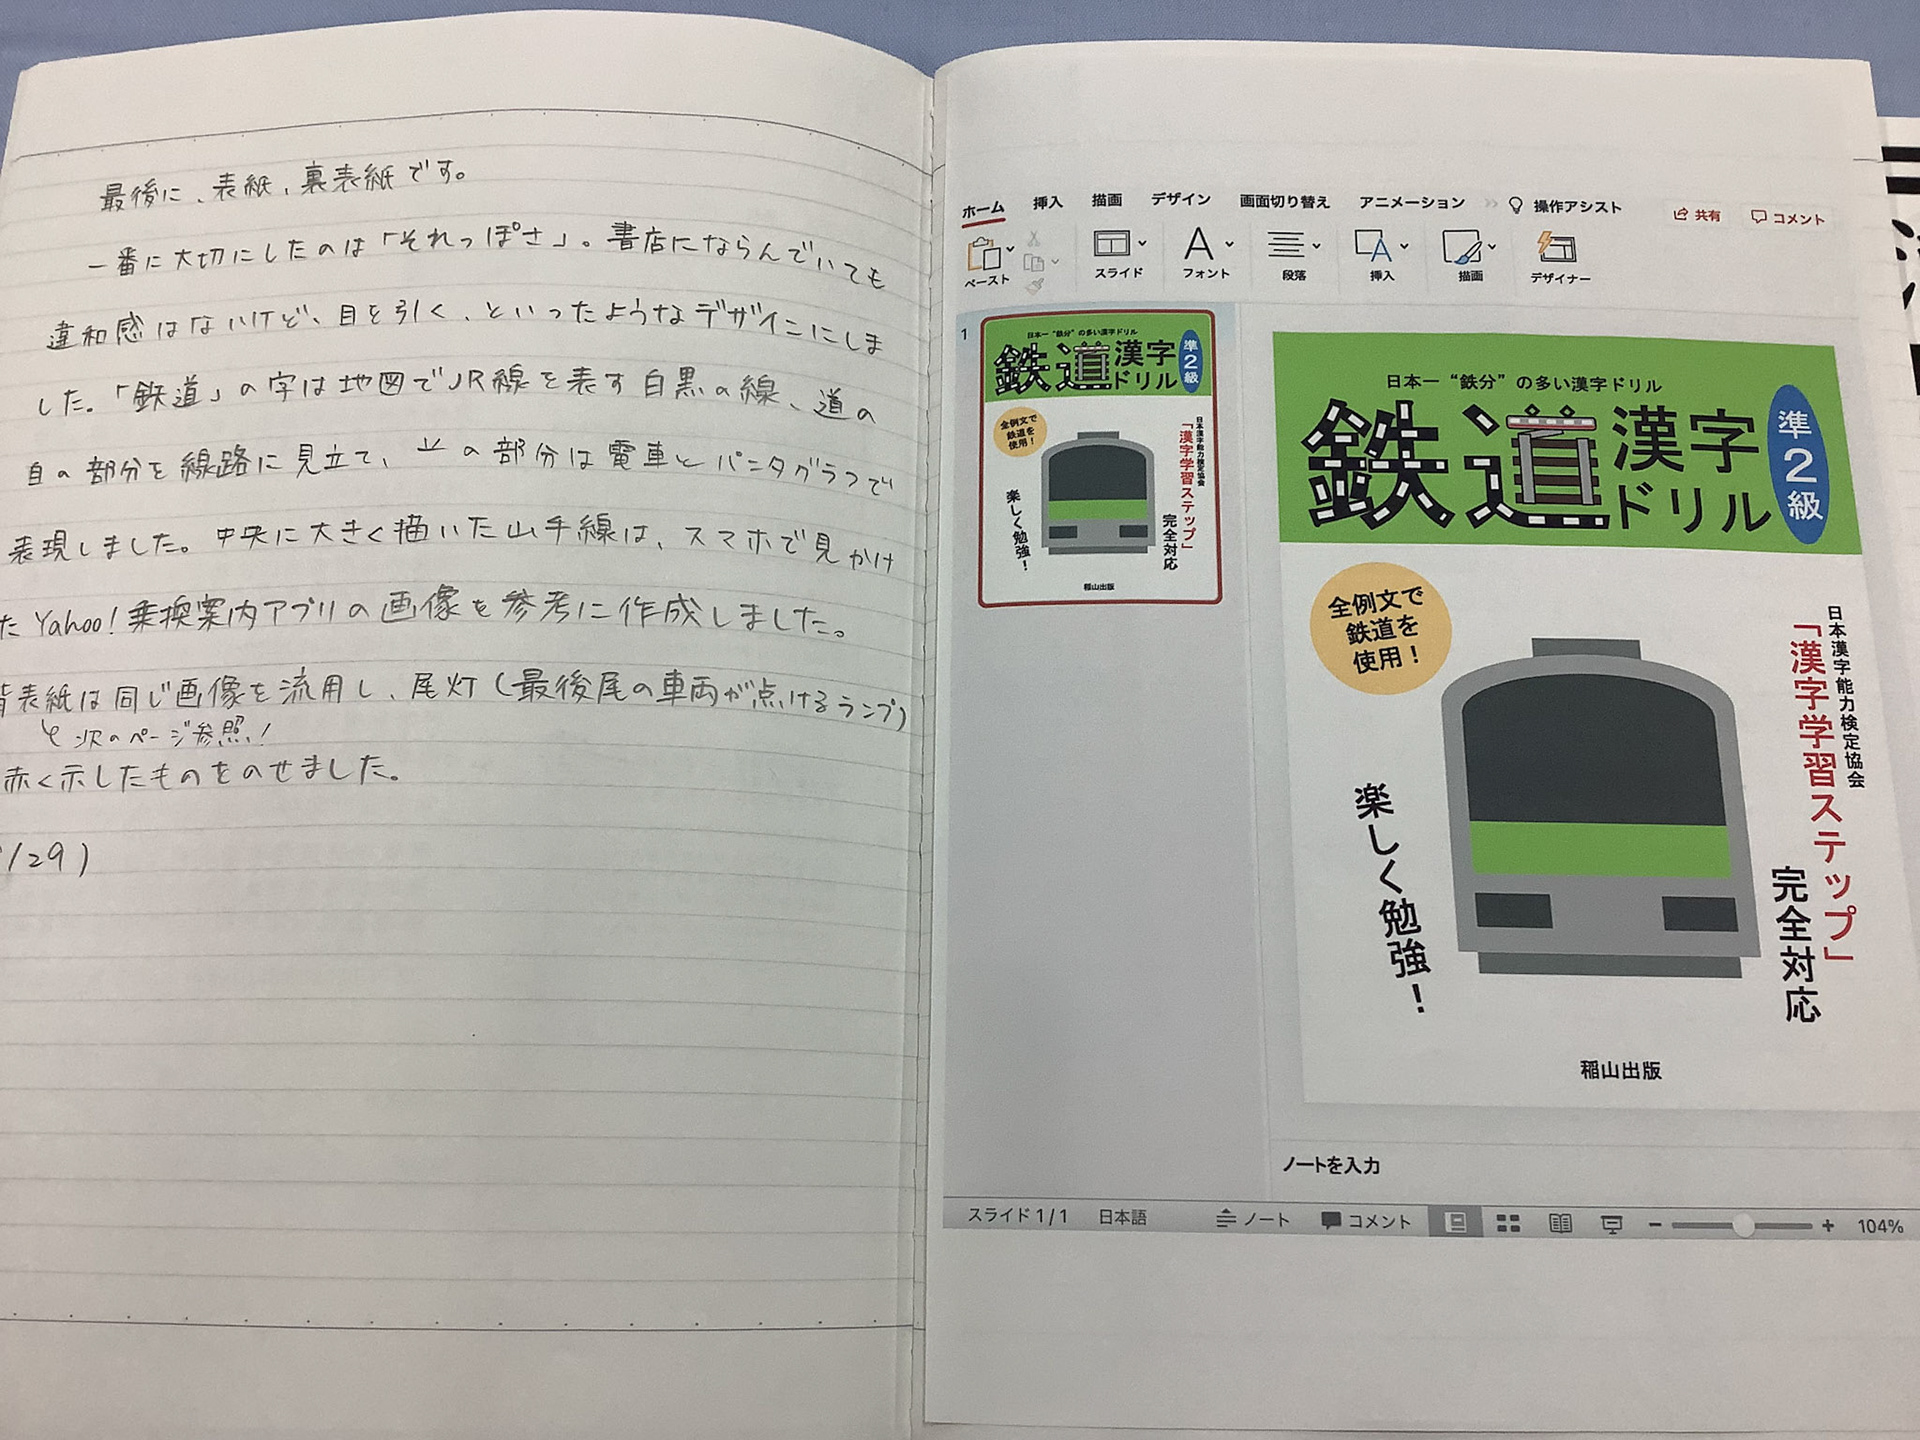 最後に、表紙、裏表紙です。
一番に大切にしたのは「それっぽさ」。書店にならんでいても
違和感はないけど、目を引く、といったようなデザインにしま
した。「鉄道」の字は地図でJR線を表す白黒の線、道の
自の部分を線路に見立て、䒑の部分は電車とパンタグラフで
表現しました。中央に大きく描いた山手線は、スマホで見かけ
たYahoo!乗換案内アプリの画像を参考に作成しました。
背表紙は同じ画像を流用し、尾灯(最後尾の車両が点けるランプ)
次のページ参照!
赤く示したものをのせました。
/29)
ホーム 挿入 描画 デザイン 画面切り替え アニメーション >> 操作アシスト 共有 コメント
ペースト スライド フォント 段落 挿入 描画 デザイナー
1
日本一 “鉄分” の多い漢字ドリル
鉄道漢字ドリル
準2級
全例文で
鉄道を
使用!
日本漢字能力検定協会
「漢字学習ステップ」
完全対応
楽しく勉強!
稲山出版
日本一 “鉄分” の多い漢字ドリル
鉄道漢字ドリル
準2級
全例文で
鉄道を
使用!
日本漢字能力検定協会
「漢字学習ステップ」
完全対応
楽しく勉強!
稲山出版
ノートを入力
スライド 1 / 1 日本語 ノート コメント 104%